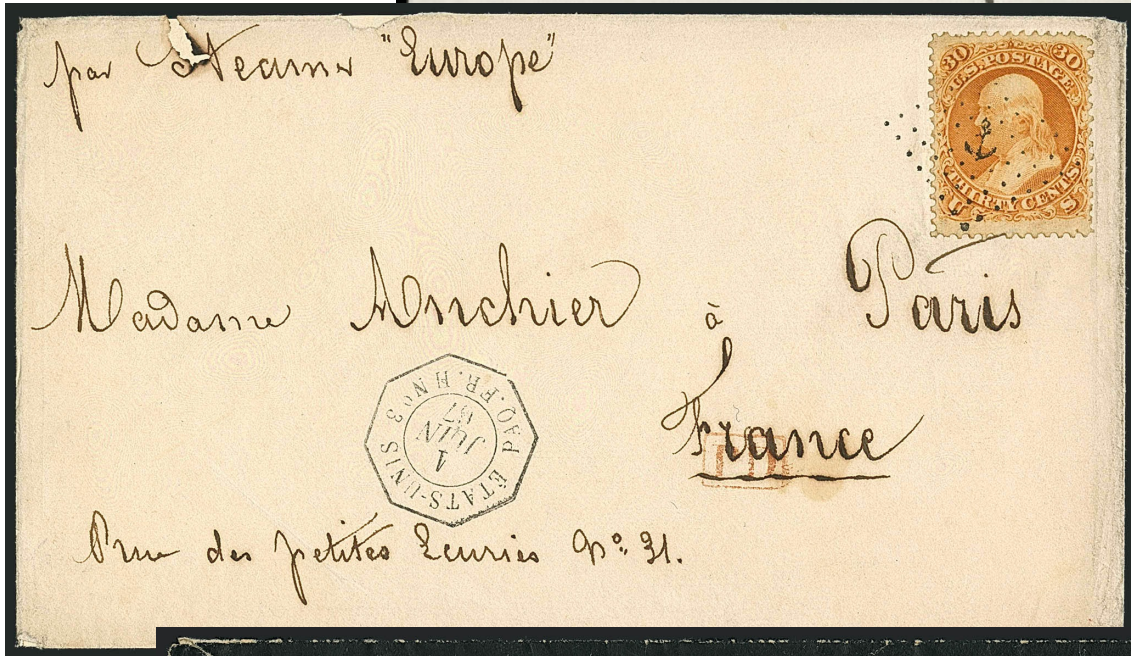 par Steamer "Europe"
30 30
U.S. POSTAGE
THIRTY CENTS
U S
Madame Anchier à Paris
France
P.D.
ETATS-UNIS
PAQ. FR. H Nº 3
1
JUIN
67
rue des petites Ecuries Nº 31.